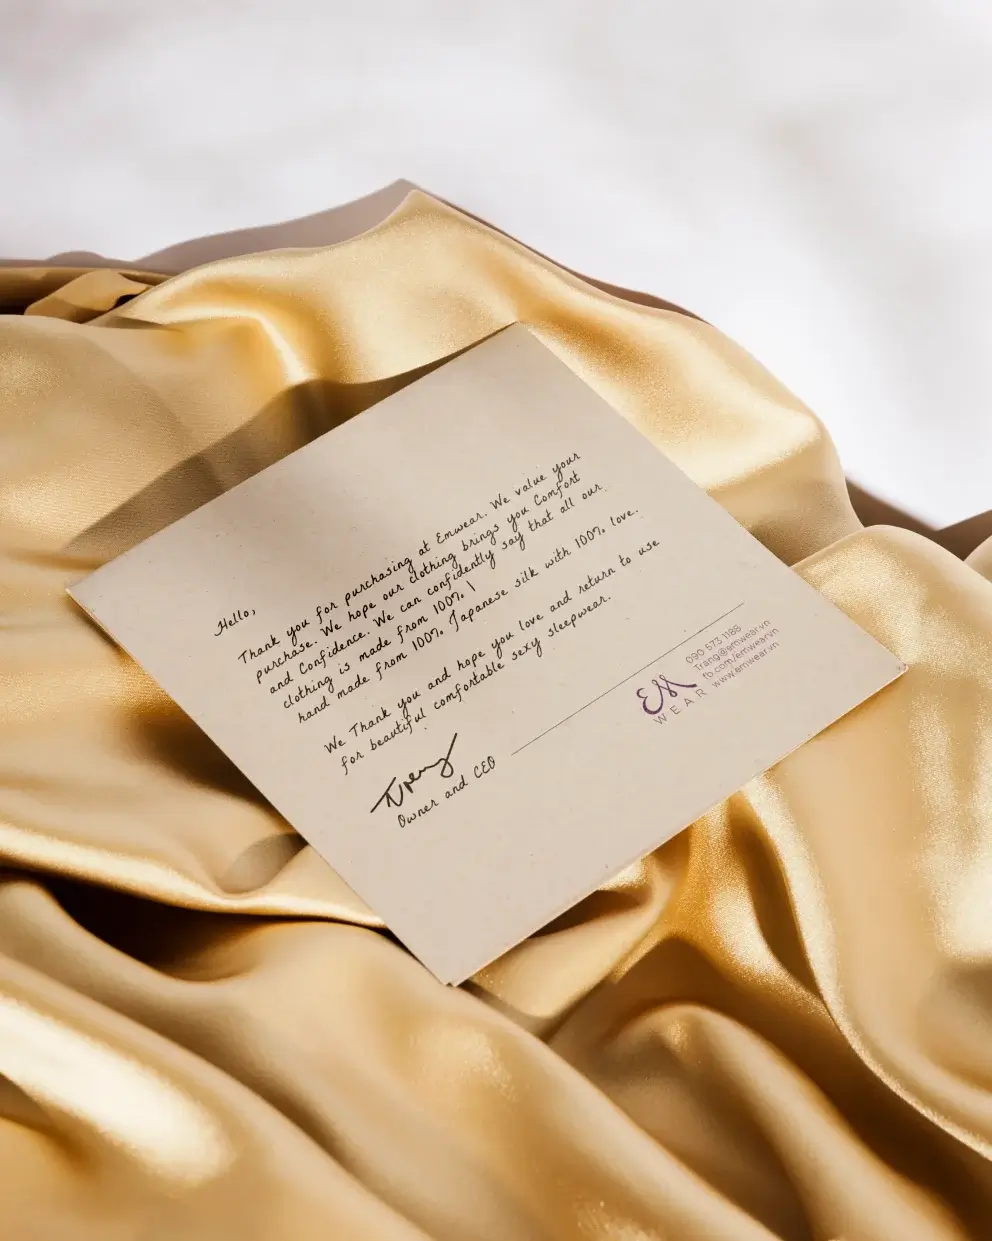 Hello,
Thank you for purchasing at Emwear. We value your
purchase. We hope our clothing brings you Comfort
and Confidence. We can confidently say that all our
clothing is made from 100% !
hand made from 100% Japanese silk with 100% love.
We Thank you and hope you love and return to use
for beautiful comfortable sexy sleepwear.
Owner and CEO
EM
WEAR
090 573 1188
Trang@emwear.vn
fb.com/emwear.vn
www.emwear.vn